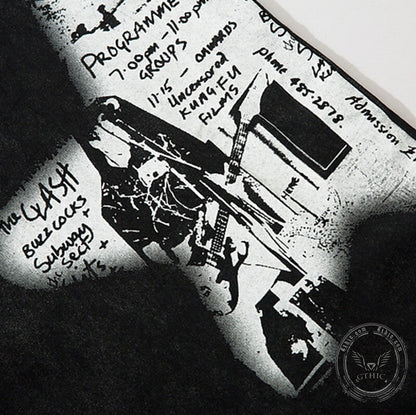 PROGRAMME
7:00pm - 11:00pm
GROUPS
11:15 - ONWARDS
UNCENSORED
KUNG.FU
FILMS
phone 485.2878.
Admission
THE CLASH
BUZZCOCKS
Subway
Sect +
GTHIC